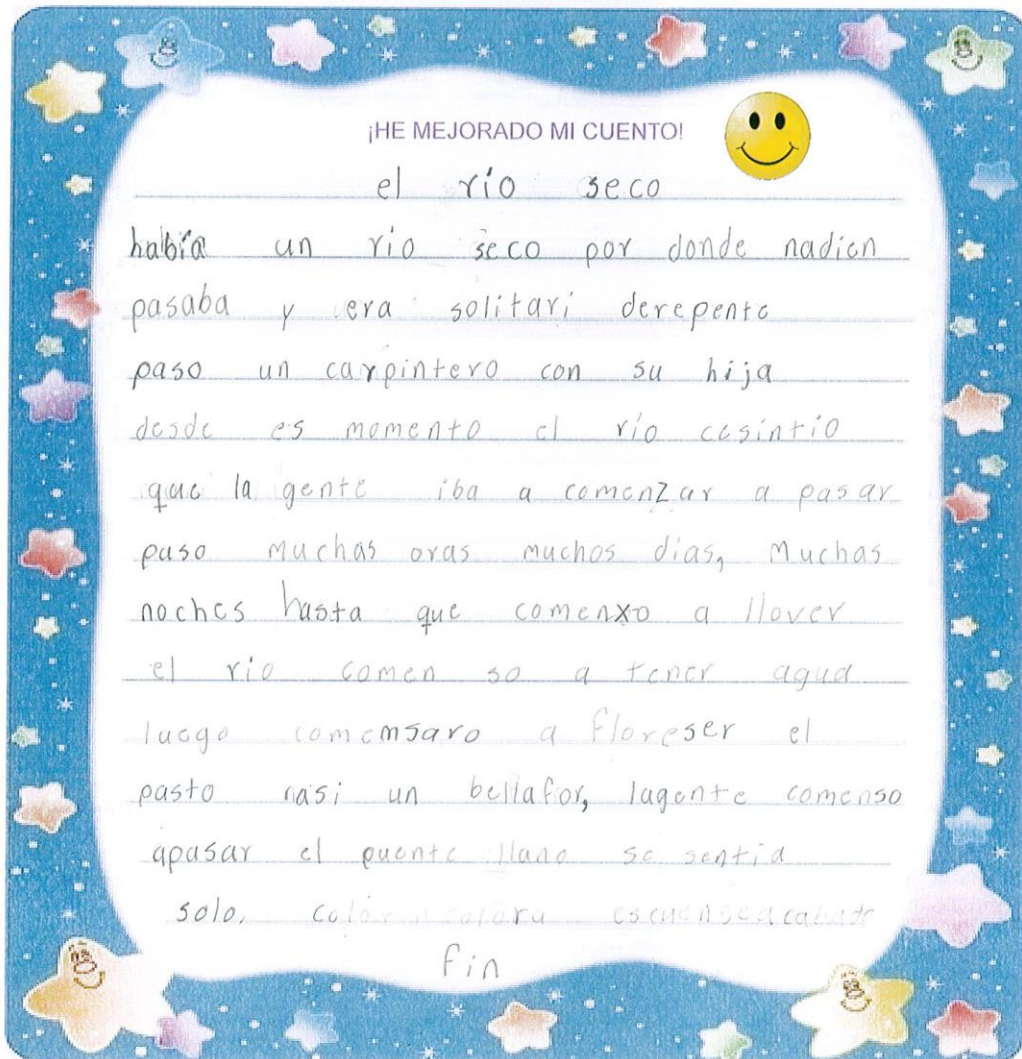 ¡HE MEJORADO MI CUENTO!
el río seco
había un rio seco por donde nadien
pasaba y era solitari derepente
paso un carpintero con su hija
desde es momento el río cesintio
que la gente iba a comenzar a pasar
paso muchas oras muchos dias, Muchas
noches hasta que comenxo a llover
el rio comen so a tener agua
luego comemsaro a floreser el
pasto nasi un bellafor, lagente comenso
apasar el puente llano se sentia
solo.
fin